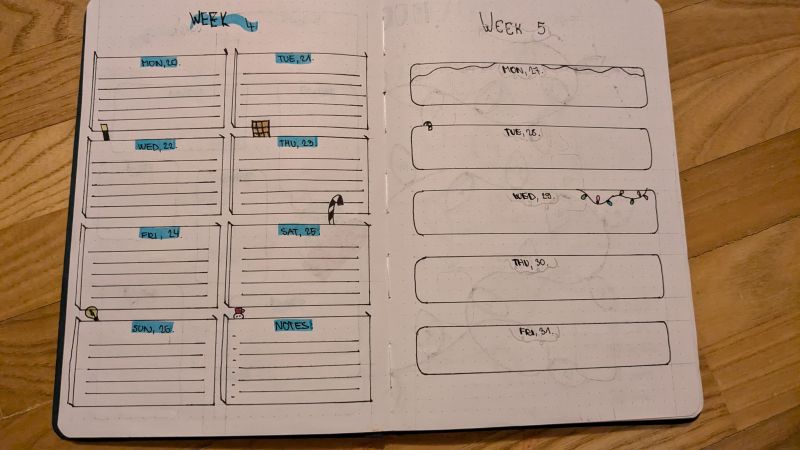 WEEK 4
MON, 20.
TUE, 21.
WED, 22.
THU, 23.
FRI, 24
SAT, 25.
SUN, 26.
NOTES:
WEEK 5
MON, 27.
TUE, 28.
WED, 29.
THU, 30.
FRI, 31.